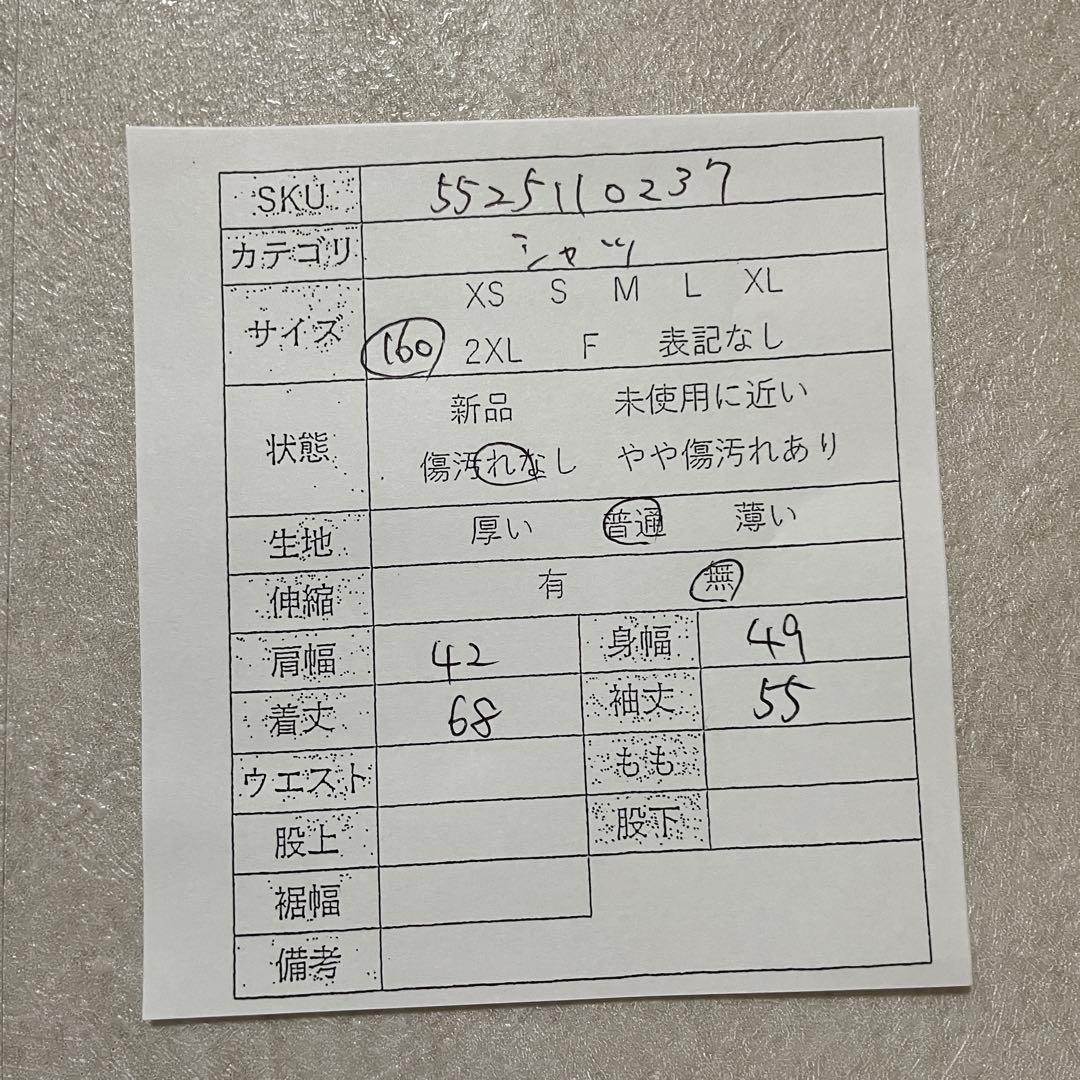 SKU 5525110237
カテゴリ シャツ
サイズ XS S M L XL
160 2XL F 表記なし
状態 新品 未使用に近い
傷汚れなし やや傷汚れあり
生地 厚い 普通 薄い
伸縮 有 無
肩幅 42 身幅 49
着丈 68 袖丈 55
ウエスト もも
股上 股下
裾幅
備考